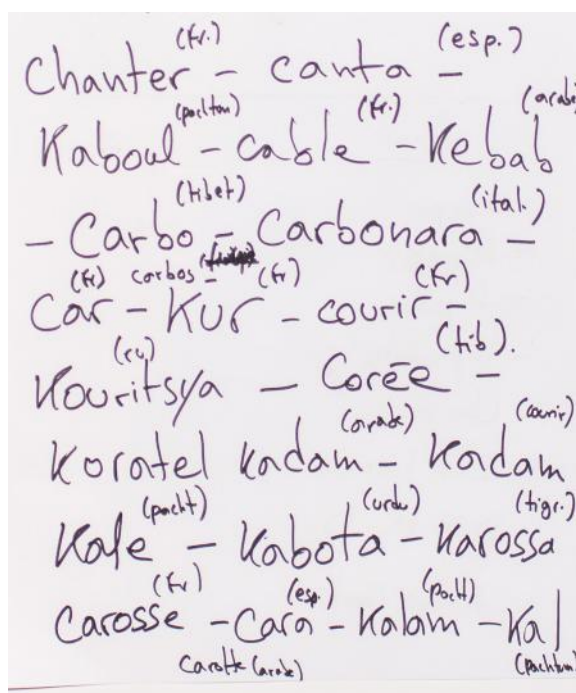 (fr.) (esp.)
Chanter - canta -
(pachtou) (fr.) (arabe)
Kaboul - cable - Kebab
(tibet) (ital.)
- Carbo - Carbonara -
(fr) carbos - (fr) (fr)
Car - Kur - courir -
(ru) (tib).
Kouritsya - Corēe -
(arabe) (courir)
Koratel Kadam - Kadam
(pacht) (urdu) (tigr.)
Kafe - Kabota - Karossa
(fr) (esp.) (pacht)
Carosse - Cara - Kalam - Kal
Carotte (arabe) (pachtoun)